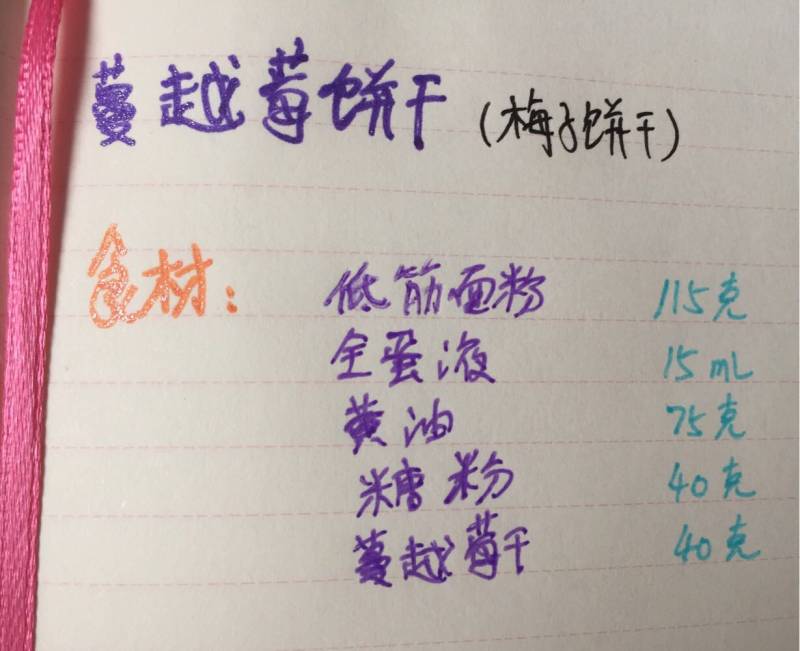 蔓越莓饼干（梅子饼干）
食材：
低筋面粉 115克
全蛋液 15mL
黄油 75克
糖粉 40克
蔓越莓干 40克